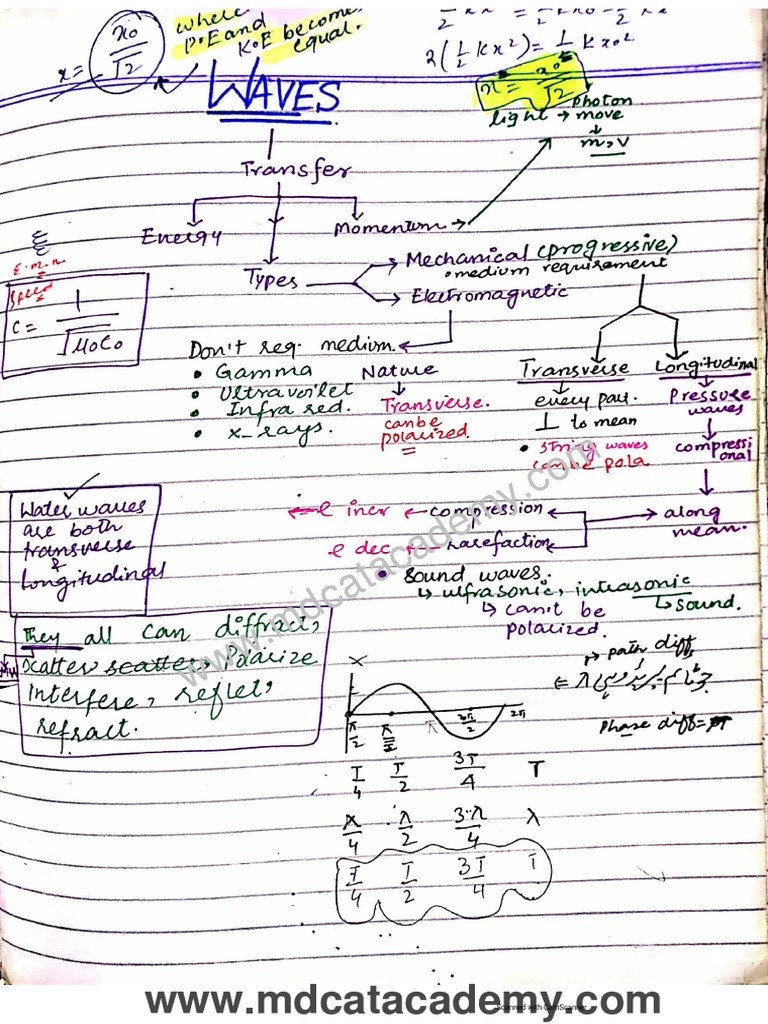 x = x₀/√2
where
P.E and
K.E become
equal.
2(½ Kx²) = ½ K x₀²
x = x₀/√2
WAVES
photon
light → move
m, v
Transfer
Energy
Momentum →
Types
Mechanical (progressive)
• medium requirement
Electromagnetic
E.m.w
speed
C = 1/√μ₀ε₀
Don't req. medium.
• Gamma
• Ultravoilet
• Infra red.
• x-rays.
Nature
Transverse.
can be
polarized.
Transverse
every part.
⊥ to mean
• string waves
can be pola
Longitudinal
Pressure
waves
compressi
onal
along
mean.
Water waves
are both
transverse
&
Longitudinal
ρ incr ← compression
ρ dec ← rarefaction
• Sound waves.
↳ ultrasonic, infrasonic
↳ sound.
↳ can't be
polarized.
They all can diffract,
scatter, Polarize
Interfere, reflet,
refract.
path diff
Phase diff =
X
π/2 π 3π/2 2π
T/4 T/2 3T/4 T
λ/4 λ/2 3λ/4 λ
T/4 T/2 3T/4 T
www.mdcatacademy.com
www.mdcatacademy.com
Scanned with CamScanner